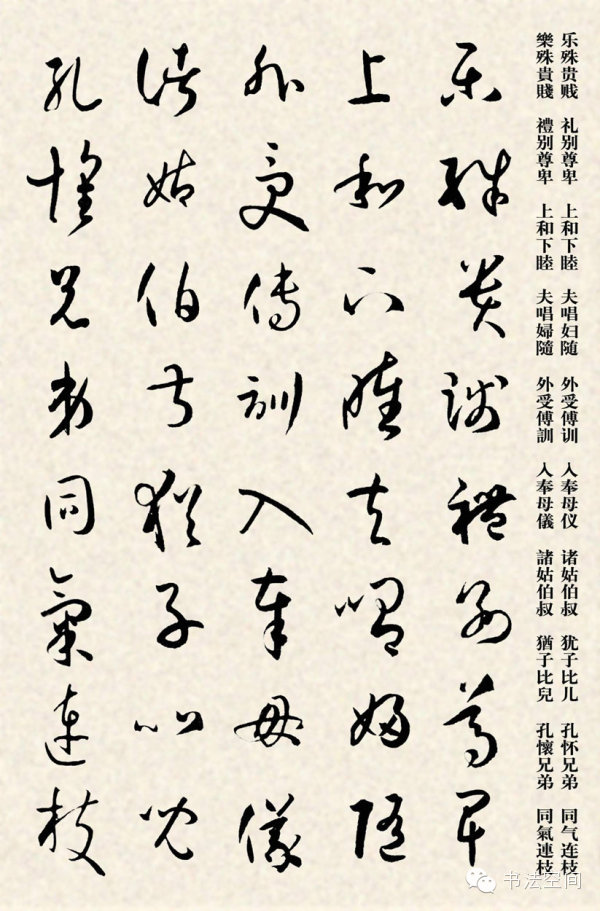 乐殊贵贱 礼别尊卑 上和下睦 夫唱妇随 外受傅训 入奉母仪 诸姑伯叔 犹子比儿 孔怀兄弟 同气连枝
樂殊貴賤 禮别尊卑 上和下睦 夫唱婦隨 外受傅訓 入奉母儀 諸姑伯叔 猶子比兒 孔懷兄弟 同氣連枝
樂殊貴賤禮别尊卑
上和下睦夫唱婦隨
外受傅訓入奉母儀
諸姑伯叔猶子比兒
孔懷兄弟同氣連枝
书法空间